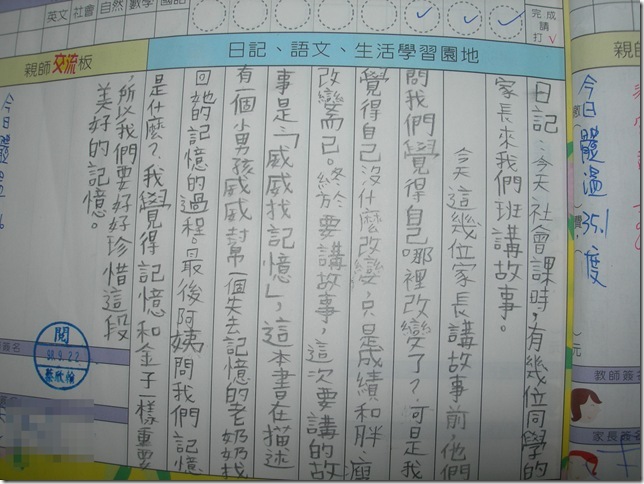 英文 社會 自然 數學 國語
完成請打✓
日記、語文、生活學習園地
親師交流板
日記:今天社會課時,有幾位同學的
家長來我們班講故事。
今天這幾位家長講故事前,他們
問我們覺得自己哪裡改變了?可是我
覺得自己沒什麼改變,只是成績和胖、瘦
改變而已。終於要講故事,這次要講的故
事是「威威找記憶」,這本書在描述
有一個小男孩威威幫一個失去記憶的老奶奶找
回她的記憶的過程。最後阿姨問我們記憶
是什麼?我覺得記憶和金子一樣重要
,所以我們要好好珍惜這段
美好的記憶。
今日體溫35.1度
元
教師簽
家長簽
今日體溫
簽名
閱
98.9.22
蔡欣怡